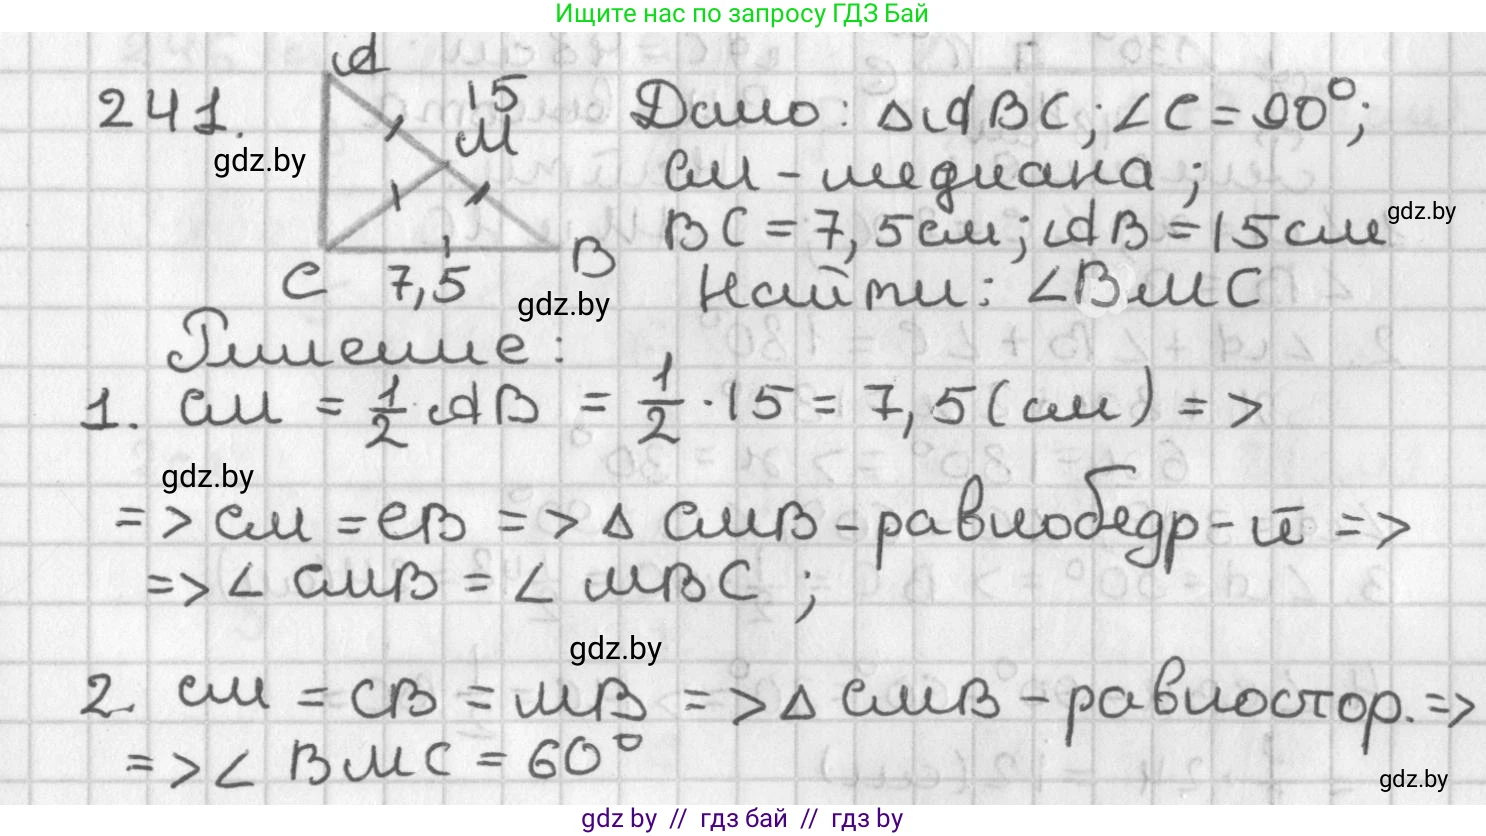 Ищите нас по запросу ГДЗ Бай
241.
A
15
M
C
7,5
B
Дано: △ABC; ∠C = 90°;
CM - медиана;
BC = 7,5см; AB = 15см
Найти: ∠BMC
gdz.by
gdz.by
gdz.by
Решение:
1. CM = 1/2 AB = 1/2 · 15 = 7,5 (см) =>
gdz.by
=> CM = CB => △ CMB - равнобедр-й =>
=> ∠ CMB = ∠ MBC ;
gdz.by
2. CM = CB = MB => △ CMB - равностор. =>
=> ∠ BMC = 60°
gdz.by
gdz by // гдз бай // гдз by